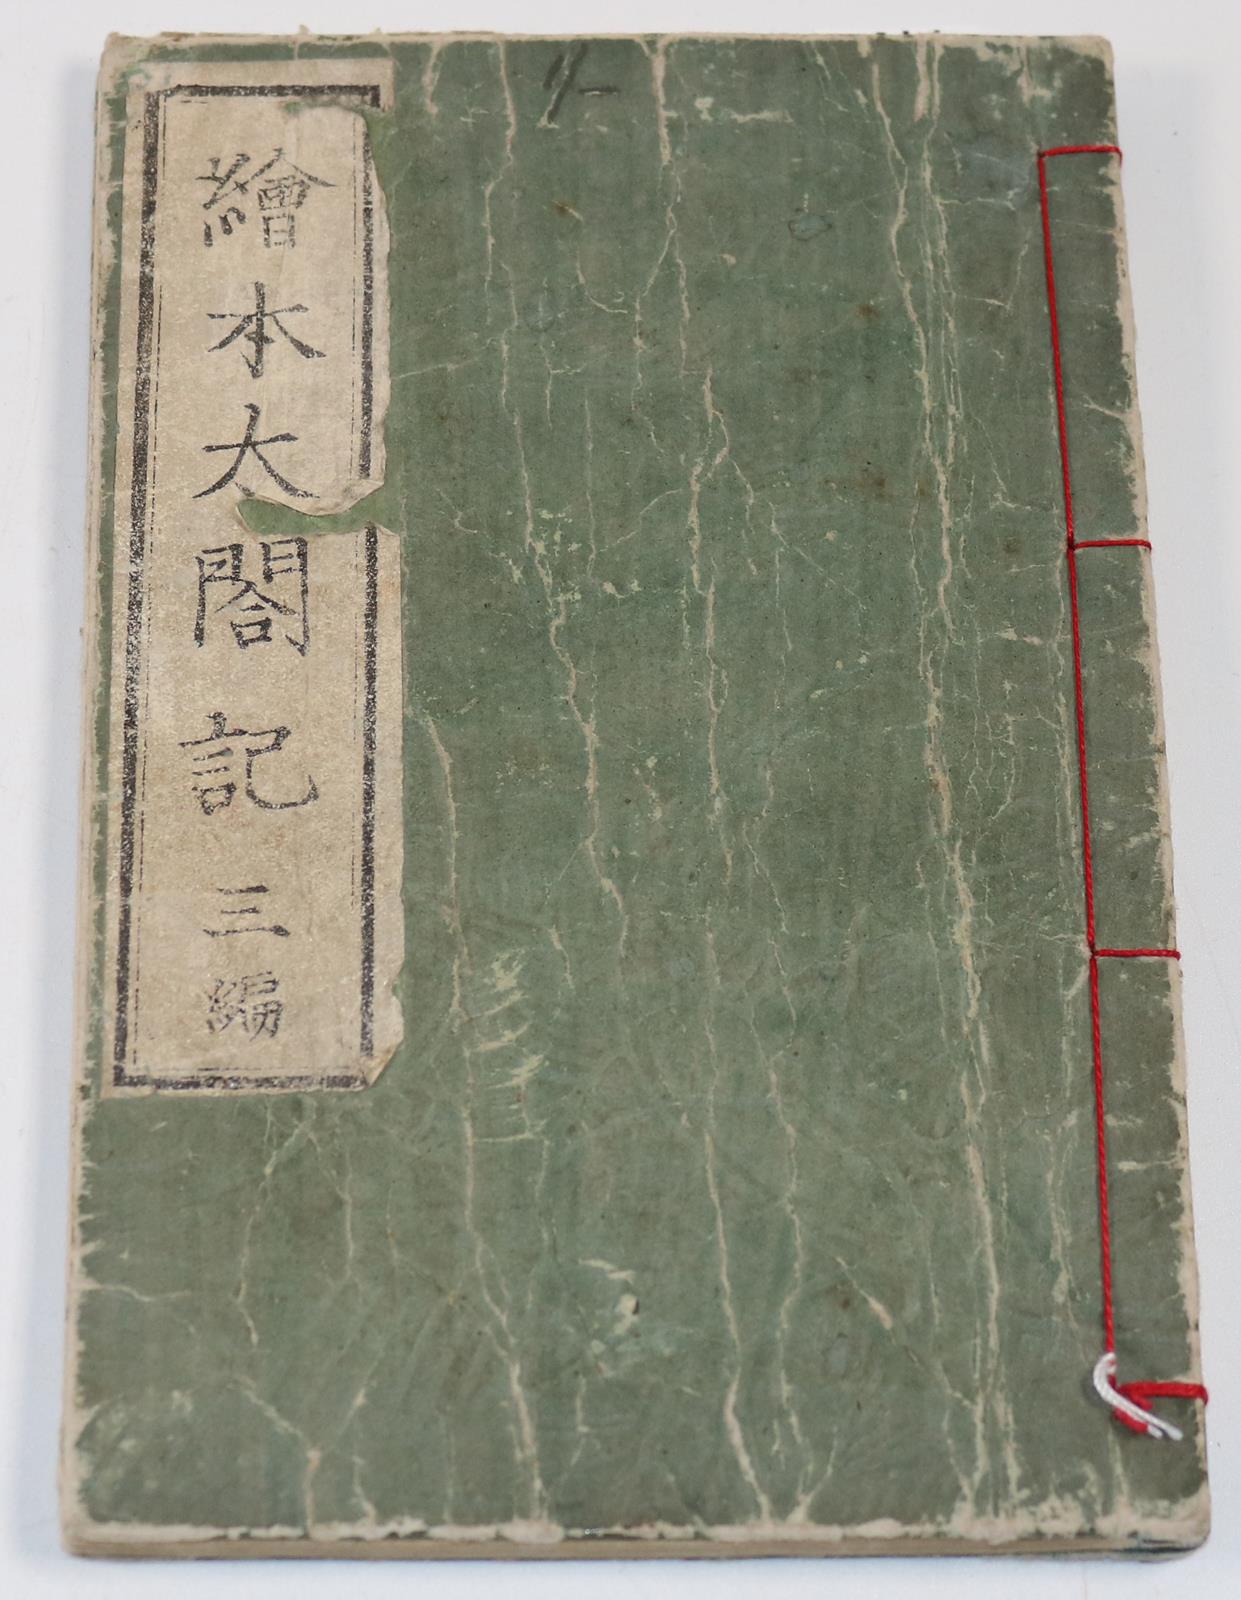 繪本太閤記三編